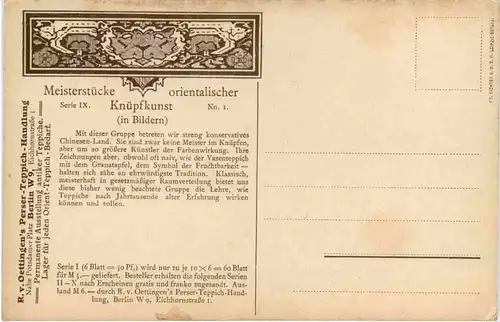 Meisterstücke orientalischer
Serie IX. Knüpfkunst No. 1.
(in Bildern)
Mit dieser Gruppe betreten wir streng konservatives
Chinesen-Land. Sie sind zwar keine Meister im Knüpfen,
aber um so größere Künstler der Farbenwirkung. Ihre
Zeichnungen aber, obwohl oft naiv, wie der Vasenteppich
mit dem Granatapfel, dem Symbol der Fruchtbarkeit —
halten sich zähe an ehrwürdigste Tradition. Klassisch,
meisterhaft in gesetzmäßiger Raumverteilung bietet uns
diese bisher wenig beachtete Gruppe die Lehre, wie
Teppiche nach Jahrtausende alter Erfahrung wirken
können und sollen.
Serie I (6 Blatt = 50 Pf.) wird nur zu je 10 × 6 = 60 Blatt
für M 5.— geliefert. Besteller erhalten die folgenden Serien
II–X nach Erscheinen gratis und franko zugesandt. Aus-
land M 6.— durch R. v. Oettingen's Perser-Teppich-Hand-
lung, Berlin W 9, Eichhornstraße 1.
R. v. Oettingen's Perser-Teppich-Handlung
Nähe Potsdamer Platz Berlin W 9, Eichhornstraße 1
Permanente Ausstellung antiker Teppiche.
Lager für jeden Orient-Teppich-Bedarf.